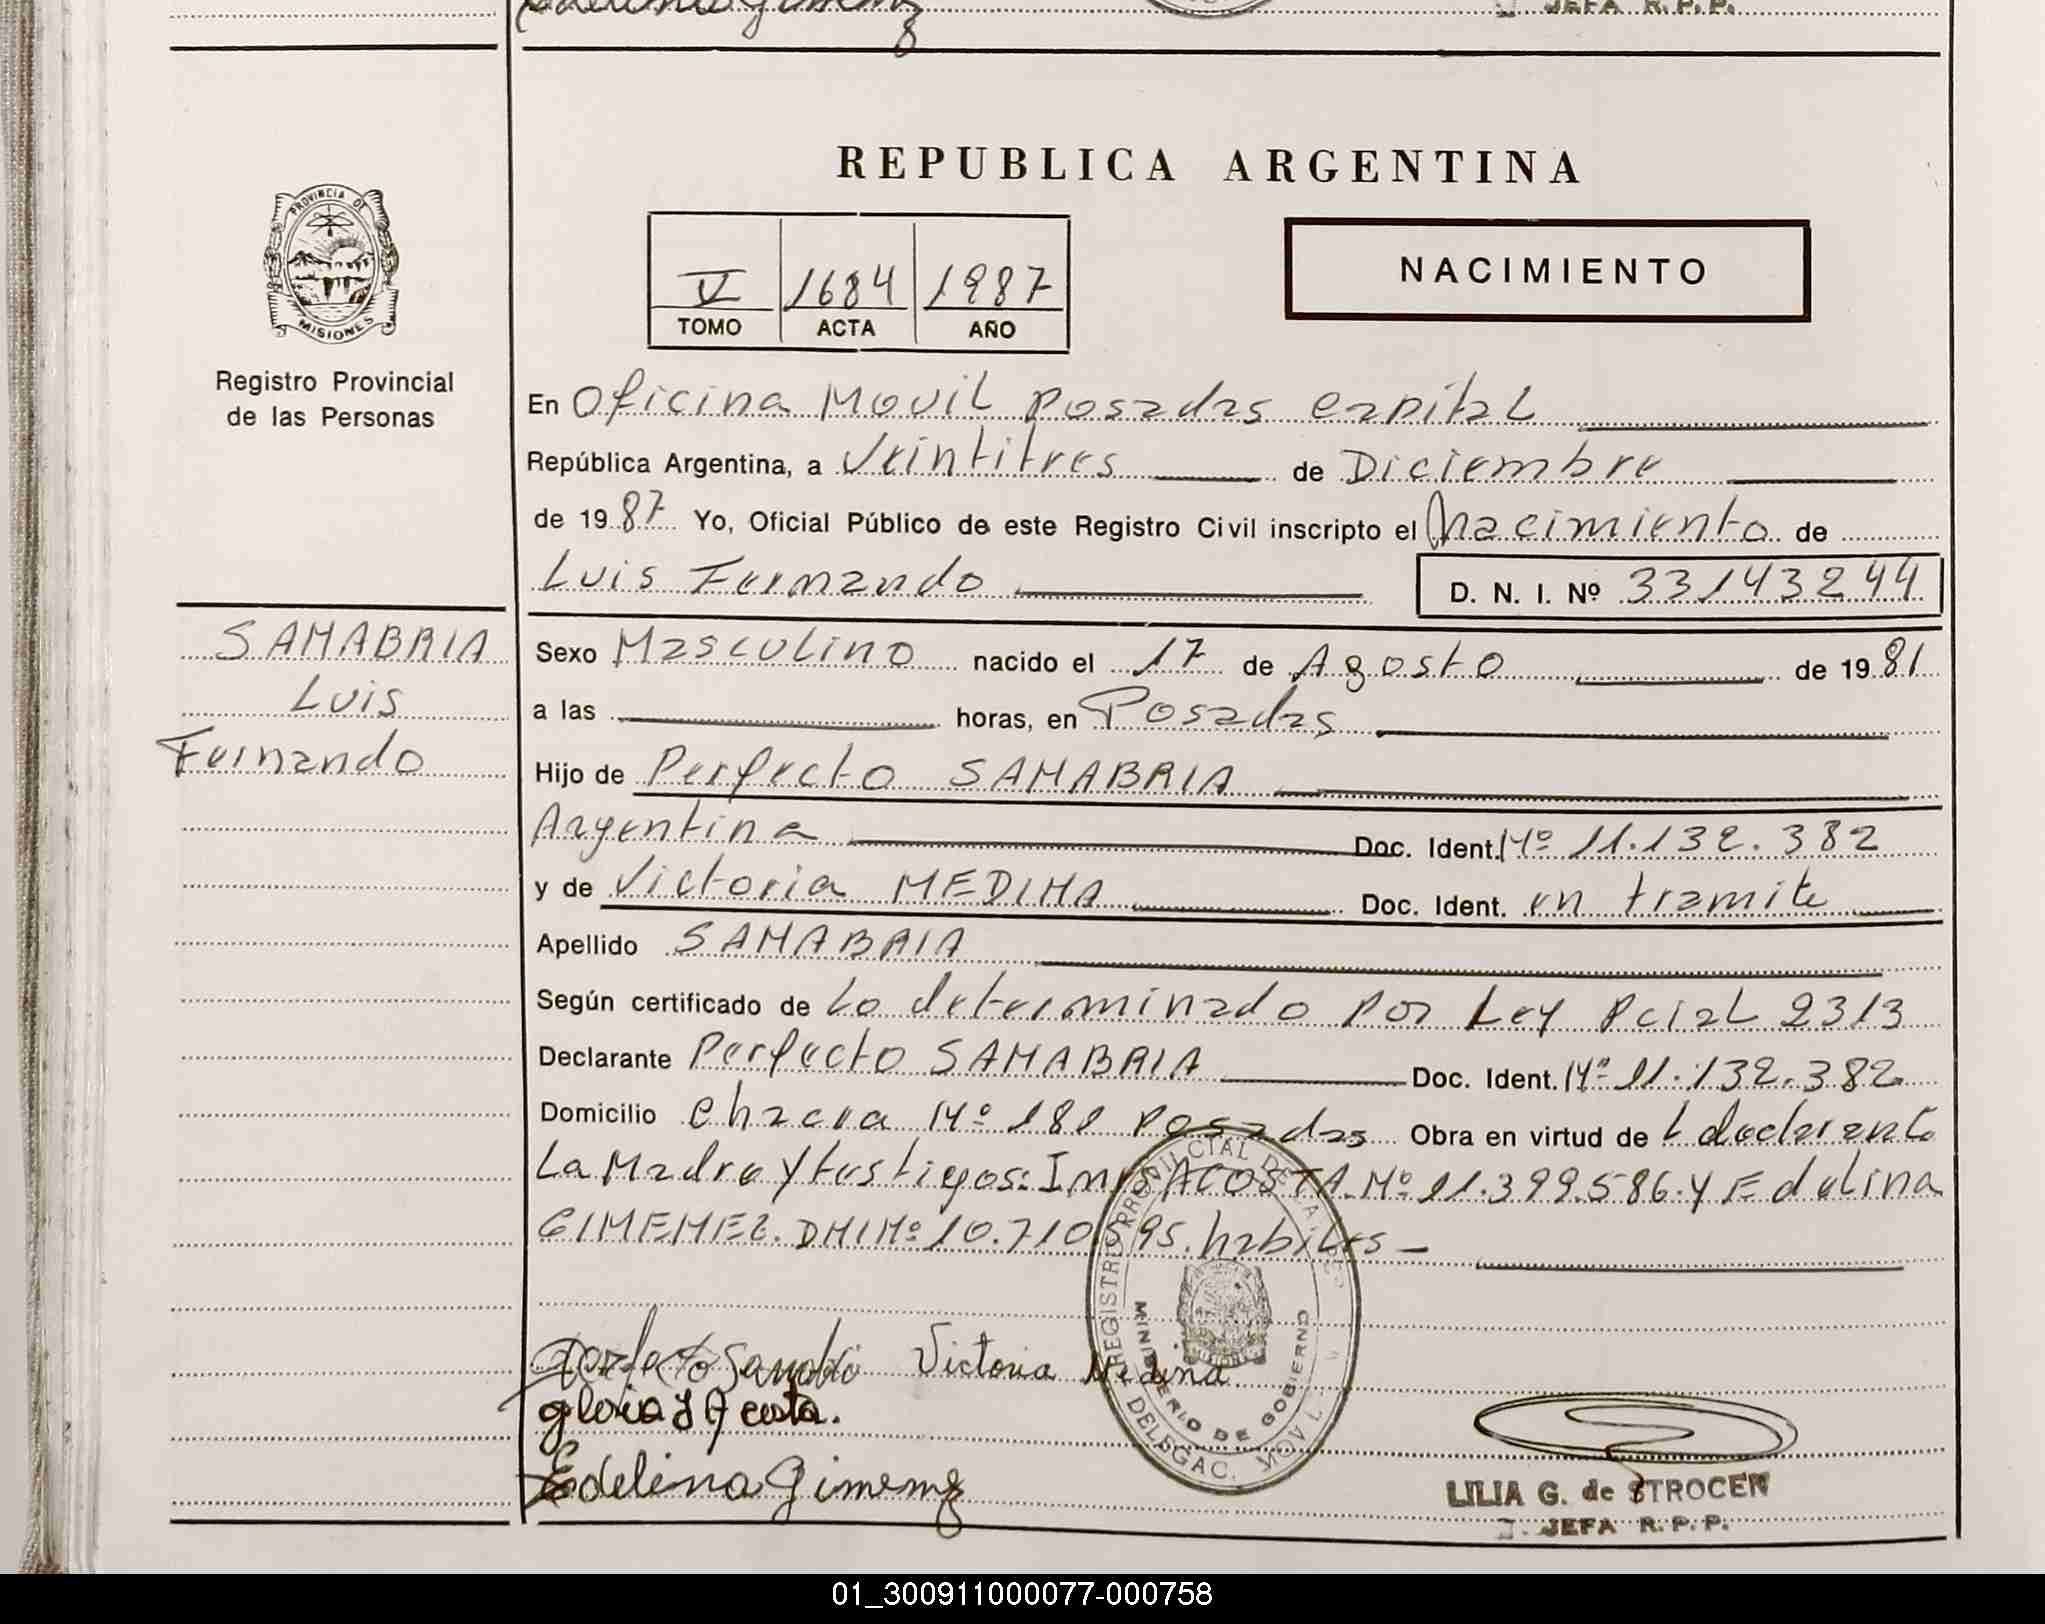 Edelina Gimenez
JEFA R.P.P.
REPUBLICA ARGENTINA
PROVINCIA DE
MISIONES
V 1684 1987
TOMO ACTA AÑO
NACIMIENTO
Registro Provincial
de las Personas
En Oficina Movil Posadas Capital
República Argentina, a Veintitres de Diciembre
de 1987 Yo, Oficial Público de este Registro Civil inscripto el Nacimiento de
Luis Fernando D. N. I. Nº 33143244
SANABRIA
Luis
Fernando
Sexo Masculino nacido el 17 de Agosto de 1981
a las horas, en Posadas
Hijo de Perfecto SANABRIA
Argentina Doc. Ident. Nº 11.132.382
y de Victoria MEDINA Doc. Ident. en tramite
Apellido SANABRIA
Según certificado de Lo determinado por Ley Pcial 2313
Declarante Perfecto SANABRIA Doc. Ident. Nº 11.132.382
Domicilio Chacra Nº 181 Posadas Obra en virtud de L declarante
La Madre y testigos: ACOSTA. Nº 11.399.586. y Edelina
GIMENEZ. DNI Nº 10.710.595. habiles
REGISTRO PROVINCIAL DE LAS
MINISTERIO DE GOBIERNO
DELEGAC. MOVIL
Victoria Medina
gloria I Acosta.
Edelina Gimenez
LILIA G. de STROCEN
JEFA R.P.P.
01_300911000077-000758